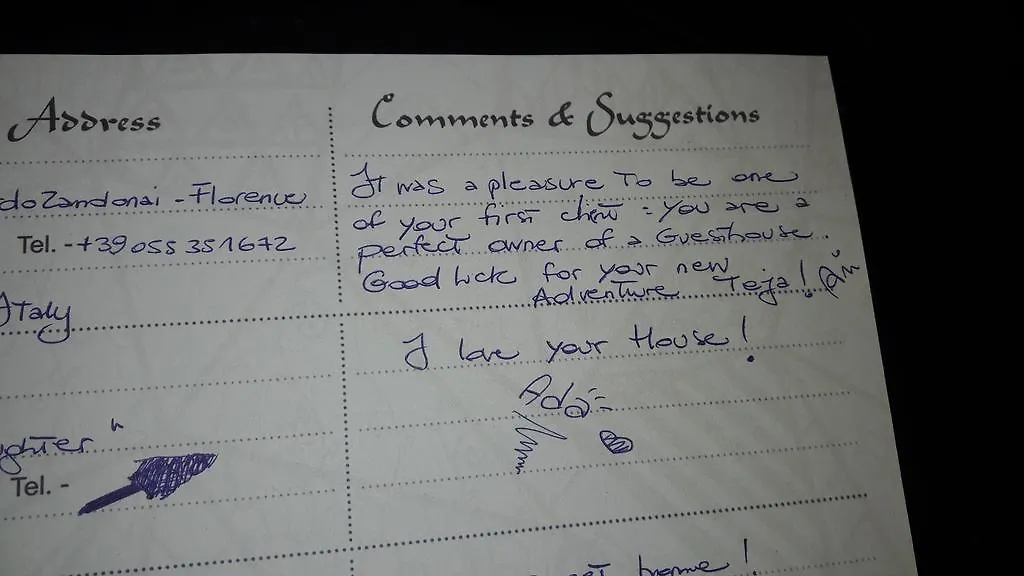 Address
Comments & Suggestions
do Zandonai - Florence
Tel. - +39 055 351672
Italy
ghter "
Tel. -
It was a pleasure to be one
of your first client : you are a
perfect owner of a Guesthouse.
Good luck for your new
Adventure Teja!
I love your House!
home!